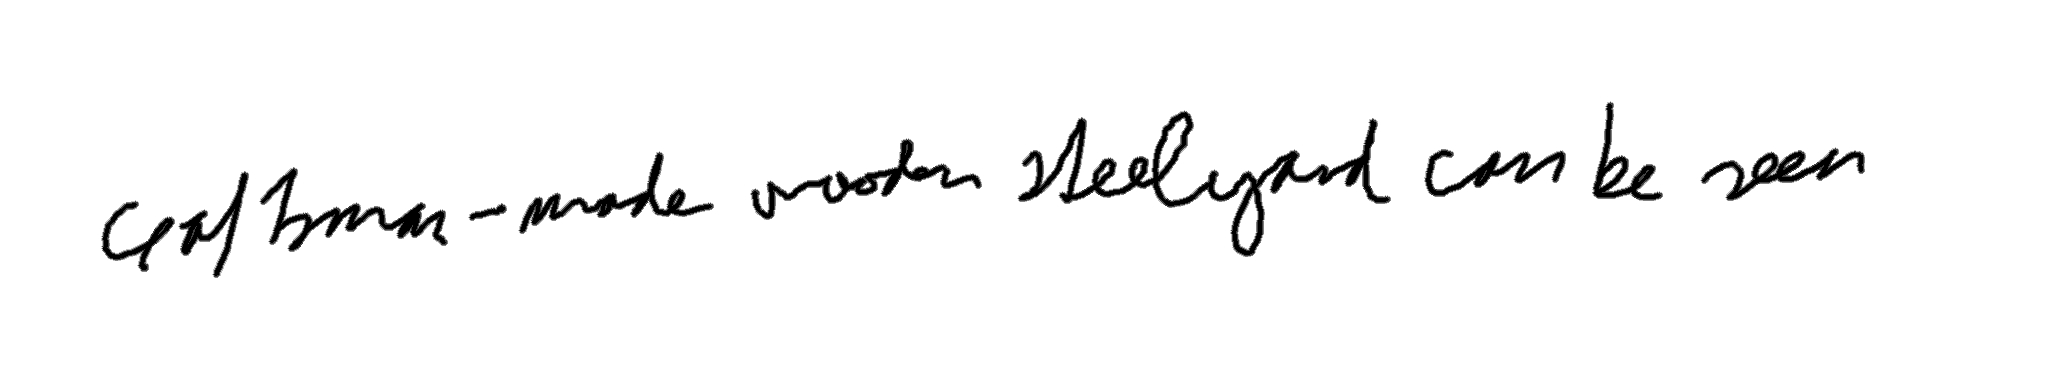 craftsman-made wooden steelyard can be seen